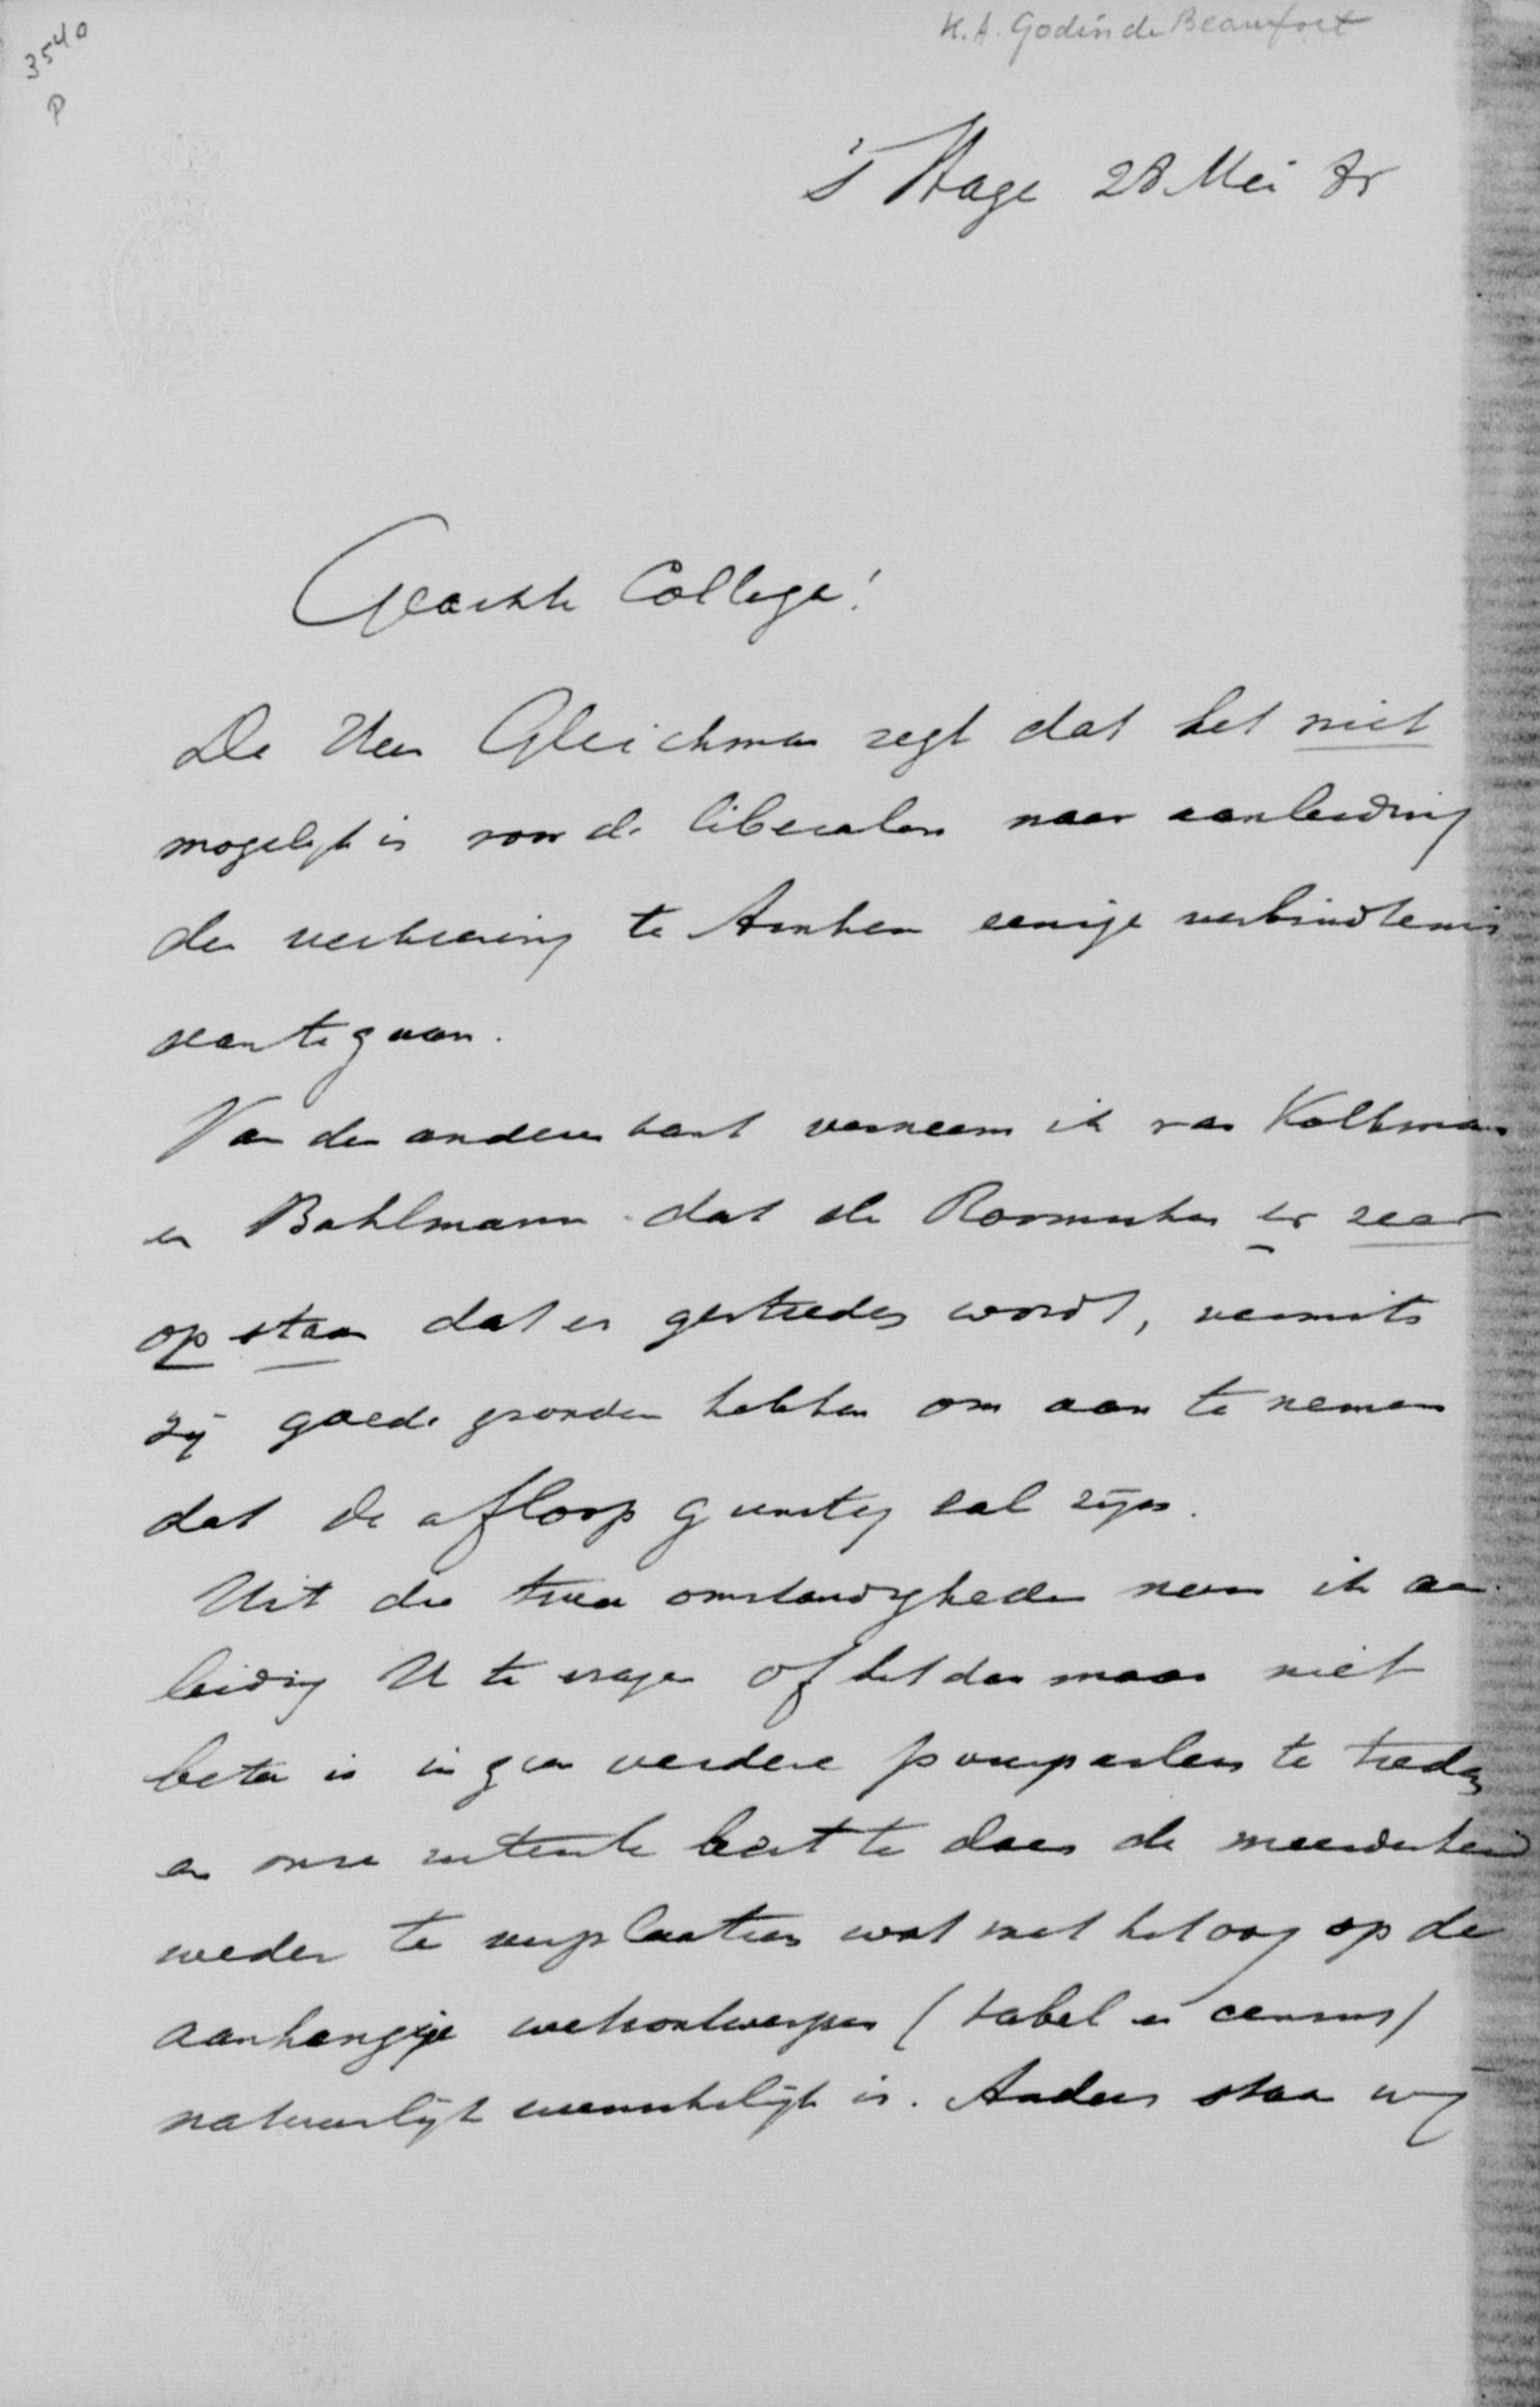 K.A. Godin de Beaufort
3540
P
's Hage 28 Mei 85
Geachte Collega!
De Heer Gleichman zegt dat het niet
mogelijk is voor de liberalen naar aanleiding
der verkiezing te Arnhem eenige verbindtenis
aan te gaan.
Van den anderen kant verneem ik van Kolkman
en Bahlmann dat de Roomschen er zeer
op staan dat er gestreden wordt, vermits
zij goede gronden hebben om aan te nemen
dat de afloop gunstig zal zijn.
Uit die twee omstandigheden neem ik aan
leiding U te vragen of het dan maar niet
beter is in geen verdere pourparlers te treden
en onze best te doen de meerderheid
weder te verplaatsen wat met het oog op de
aanhangige wetsontwerpen (tabel en census)
natuurlijk wenschelijk is. Anders staan wij